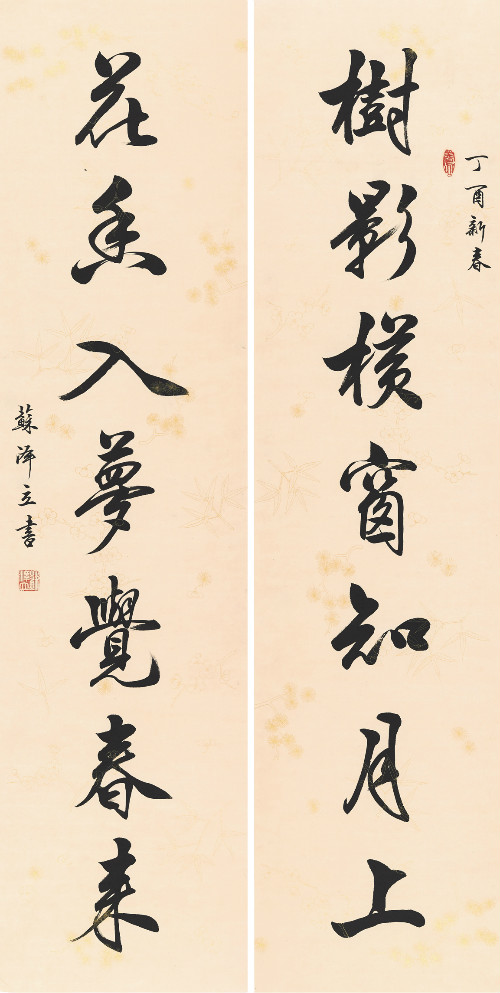 丁酉新春
樹影橫窗知月上
花香入夢覺春來
蘇澤立書